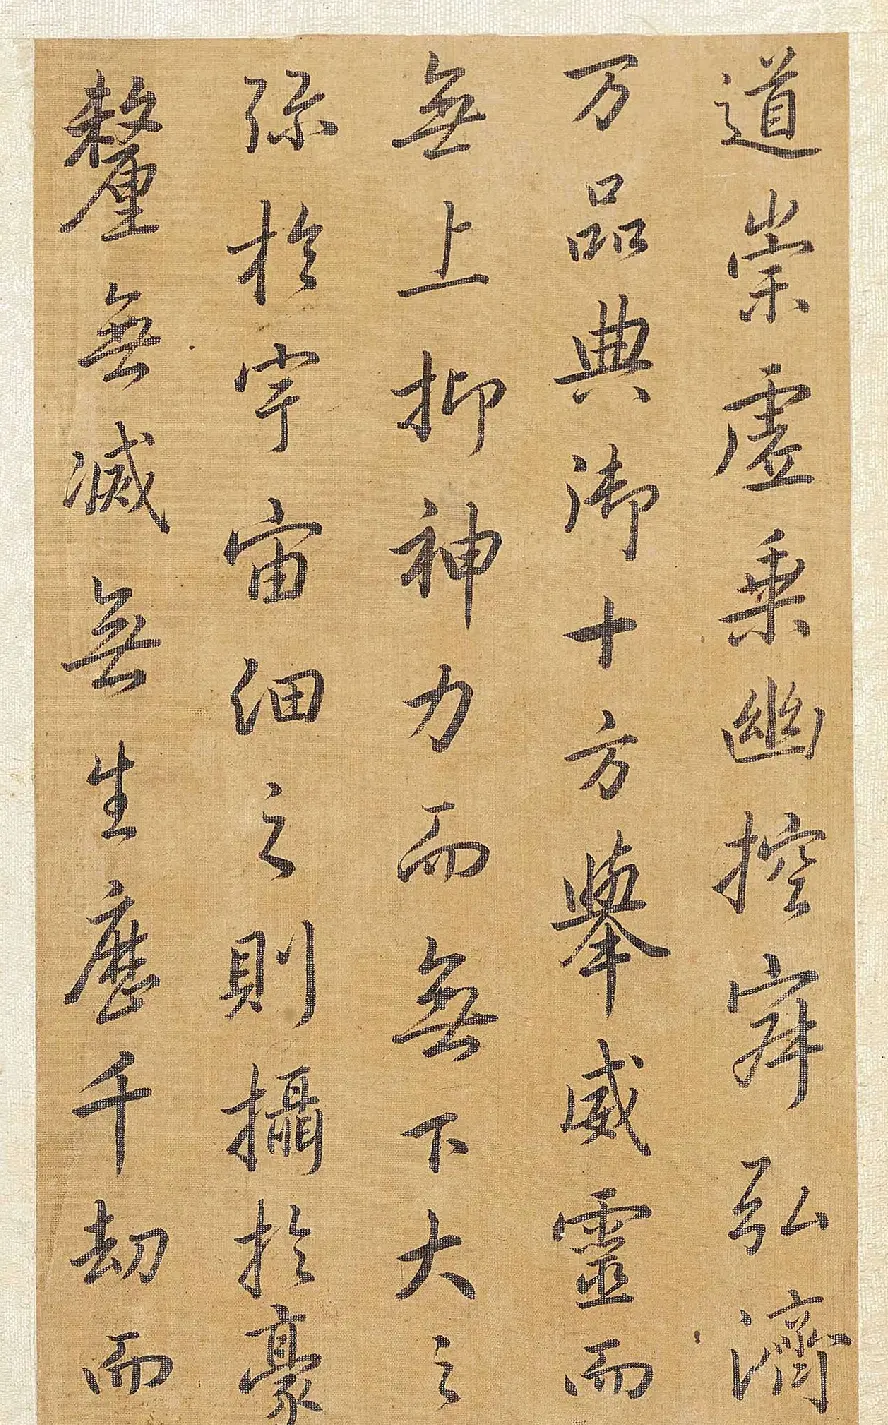 道崇虛乘幽控寂弘濟
万品典御十方舉威靈而
無上抑神力而無下大之
弥於宇宙細之則攝於豪
釐無滅無生歷千劫而